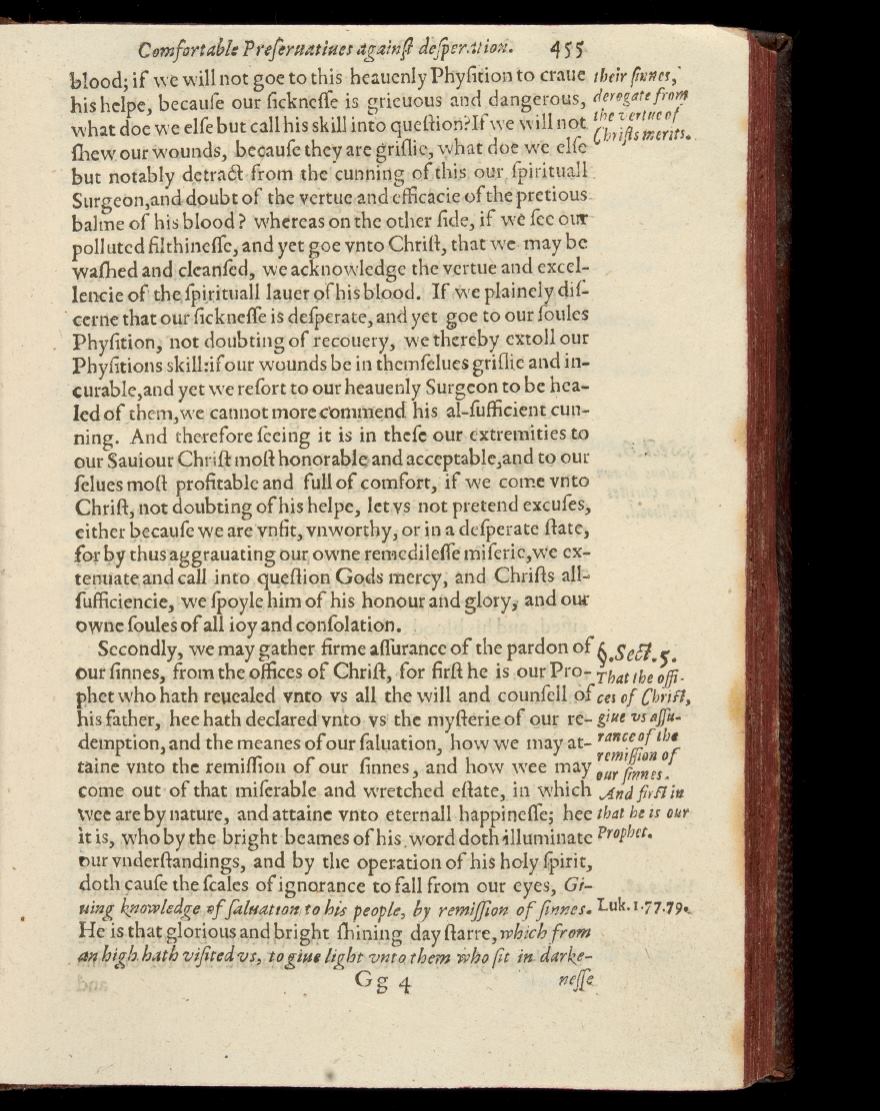 Comfortable Preſeruatiues againſt deſperation. 455
blood; if we will not goe to this heauenly Phyſition to craue
his helpe, becauſe our ſickneſſe is grieuous and dangerous,
what doe we elſe but call his skill into queſtion? If we will not
ſhew our wounds, becauſe they are griſlie, what doe we elſe
but notably detract from the cunning of this our ſpirituall
Surgeon, and doubt of the vertue and efficacie of the pretious
balme of his blood? whereas on the other ſide, if we ſee our
polluted filthineſſe, and yet goe vnto Chriſt, that we may be
waſhed and cleanſed, we acknowledge the vertue and excel-
lencie of the ſpirituall lauer of his blood. If we plainely diſ-
cerne that our ſickneſſe is deſperate, and yet goe to our ſoules
Phyſition, not doubting of recouery, we thereby extoll our
Phyſitions skill: if our wounds be in themſelues griſlie and in-
curable, and yet we reſort to our heauenly Surgeon to be hea-
led of them, we cannot more commend his al-ſufficient cun-
ning. And therefore ſeeing it is in theſe our extremities to
our Sauiour Chriſt moſt honorable and acceptable, and to our
ſelues moſt profitable and full of comfort, if we come vnto
Chriſt, not doubting of his helpe, let vs not pretend excuſes,
either becauſe we are vnfit, vnworthy, or in a deſperate ſtate,
for by thus aggrauating our owne remedileſſe miſerie, we ex-
tenuate and call into queſtion Gods mercy, and Chriſts all-
ſufficiencie, we ſpoyle him of his honour and glory, and our
owne ſoules of all ioy and conſolation.
Secondly, we may gather firme aſſurance of the pardon of
our ſinnes, from the offices of Chriſt, for firſt he is our Pro-
phet who hath reuealed vnto vs all the will and counſell of
his father, hee hath declared vnto vs the myſterie of our re-
demption, and the meanes of our ſaluation, how we may at-
taine vnto the remiſſion of our ſinnes, and how wee may
come out of that miſerable and wretched eſtate, in which
wee are by nature, and attaine vnto eternall happineſſe; hee
it is, who by the bright beames of his word doth illuminate
our vnderſtandings, and by the operation of his holy ſpirit,
doth cauſe the ſcales of ignorance to fall from our eyes, Gi-
uing knowledge of ſaluation to his people, by remiſſion of ſinnes.
He is that glorious and bright ſhining day ſtarre, which from
an high hath viſited vs, to giue light vnto them who ſit in darke-
Gg 4 neſſe
their ſinnes,
derogate from
the vertue of
Chriſts merits.
§. Sect. 5.
That the offi-
ces of Chriſt,
giue vs aſſu-
rance of the
remiſſion of
our ſinnes.
And firſt in
that he is our
Prophet.
Luk. 1. 77. 79.